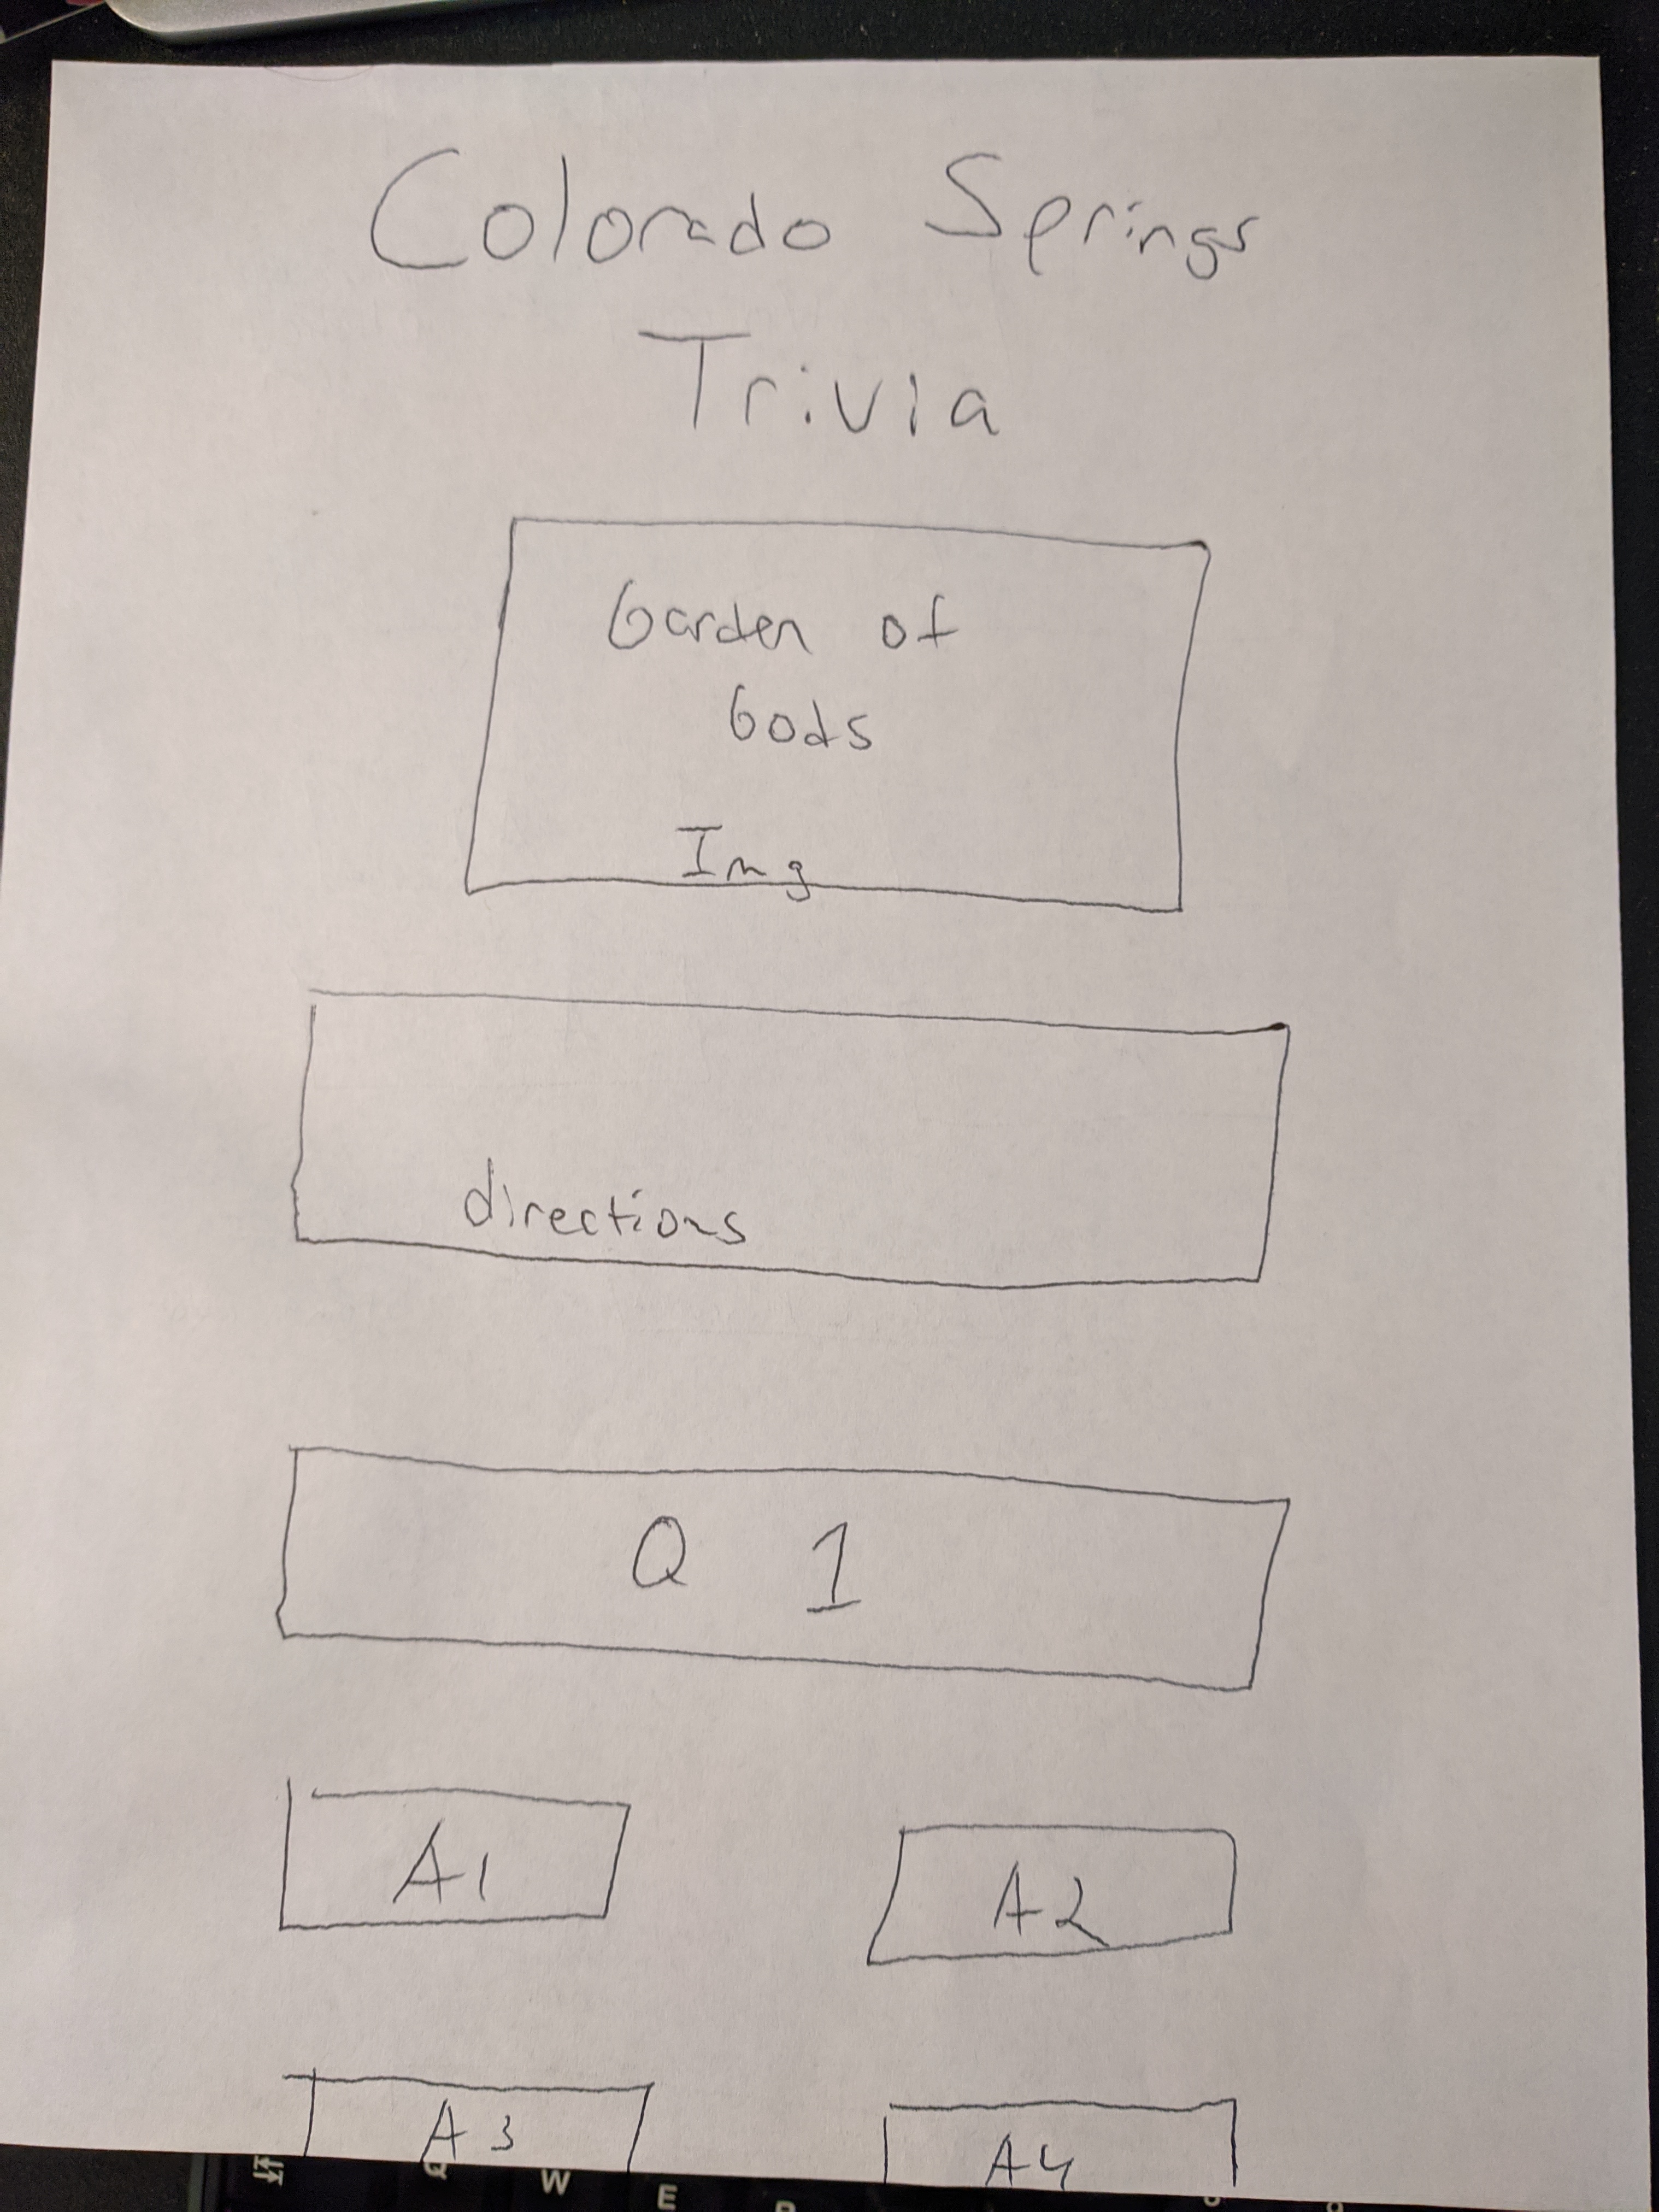 Colorado Springs
Trivia
Garden of
Gods
Img
directions
Q 1
A1 A2
A3 A4
Q W E